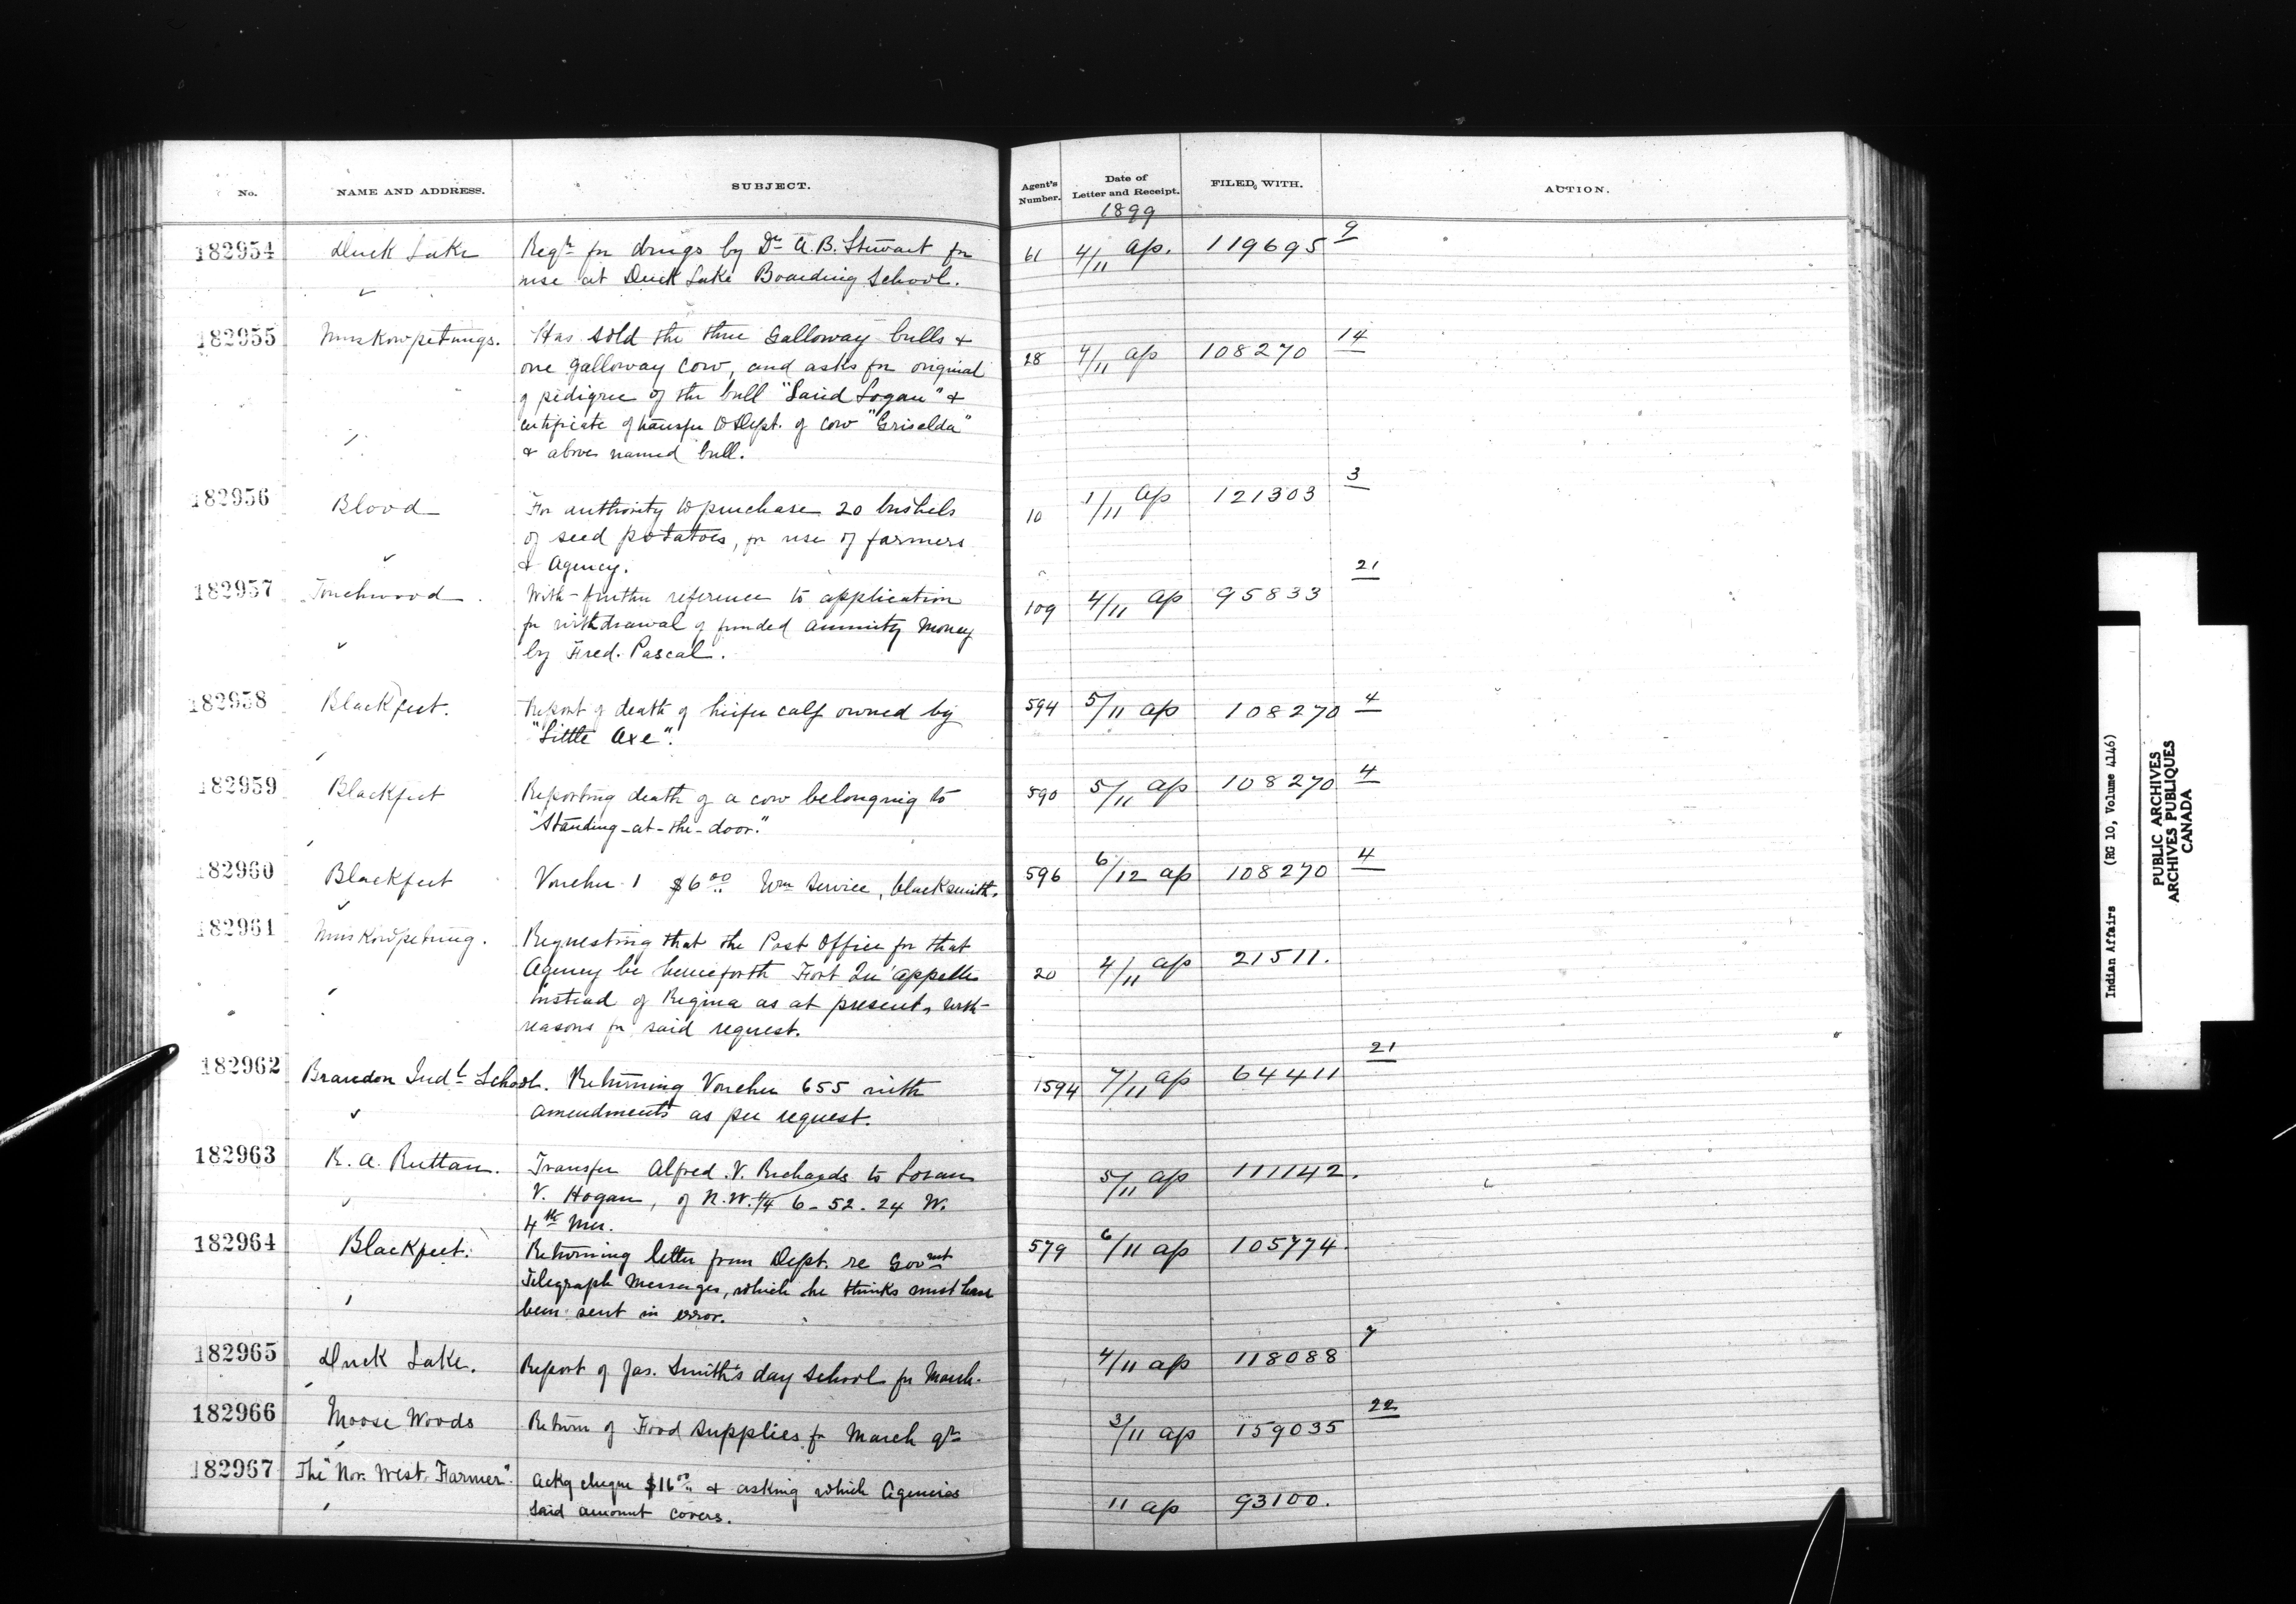 No. NAME AND ADDRESS. SUBJECT. Agent's Number. Date of Letter and Receipt. FILED WITH. ACTION.
1899
182954 Duck Lake Reqn for drugs by Dr A. B. Stewart for 61 4/11 ap. 119695 9
use at Duck Lake Boarding School.
182955 Muskowpetungs. Has sold the three Galloway bulls & 28 4/11 ap 108270 14
one galloway cow, and asks for original
of pedigree of the bull "Laird Logan" &
certificate of transfer to Dept. of cow "Griselda"
& above named bull.
182956 Blood For authority to purchase 20 bushels 10 1/11 ap 121303 3
of seed potatoes, for use of farmers
& Agency.
182957 Touchwood. With further reference to application 109 4/11 ap 95833 21
for withdrawal of funded annuity money
by Fred. Pascal.
182958 Blackfeet. Report of death of heifer calf owned by 594 5/11 ap 108270 4
"Little Axe".
182959 Blackfeet Reporting death of a cow belonging to 590 5/11 ap 108270 4
"Standing-at-the-door."
182960 Blackfeet Voucher 1 $6.00 Wm Service, blacksmith. 596 6/12 ap 108270 4
182961 Muskowpetung. Requesting that the Post Office for that 20 4/11 ap 21511.
Agency be henceforth Fort Qu'appelle
instead of Regina as at present, with
reasons for said request.
182962 Brandon Indl School. Returning Voucher 655 with 1594 7/11 ap 64411 21
amendments as per request.
182963 R. A. Ruttan. Transfer Alfred V. Richards to Loran 5/11 ap 111142.
V. Hogan, of N.W. 1/4 6-52-24 W.
4th Mer.
182964 Blackfeet. Returning letter from Dept. re Govmt 579 6/11 ap 105774.
Telegraph Messages, which he thinks must have
been sent in error.
182965 Duck Lake. Report of Jas. Smith's day School for March. 4/11 ap 118088 7
182966 Moose Woods Return of Food Supplies for March qr 3/11 ap 159035 22
182967 The "Nor. West. Farmer". Ackg cheque $16.00 & asking which Agencies 11 ap 93100.
said amount covers.
Indian Affairs (RG 10, Volume 4146)
PUBLIC ARCHIVES
ARCHIVES PUBLIQUES
CANADA